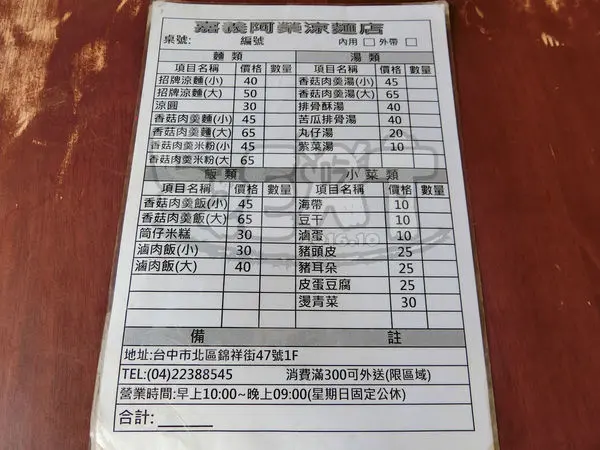 嘉義阿榮涼麵店
桌號: 編號 內用 □ 外帶 □
麵 類 湯 類
項目名稱 價格 數量 項目名稱 價格 數量
招牌涼麵(小) 40 香菇肉羹湯(小) 45
招牌涼麵(大) 50 香菇肉羹湯(大) 65
涼圓 30 排骨酥湯 40
香菇肉羹麵(小) 45 苦瓜排骨湯 40
香菇肉羹麵(大) 65 丸仔湯 20
香菇肉羹米粉(小 45 紫菜湯 10
香菇肉羹米粉(大 65
飯 類 小 菜 類
項目名稱 價格 數量 項目名稱 價格 數量
香菇肉羹飯(小) 45 海帶 10
香菇肉羹飯(大) 65 豆干 10
筒仔米糕 30 滷蛋 10
滷肉飯(小) 30 豬頭皮 25
滷肉飯(大) 40 豬耳朵 25
皮蛋豆腐 25
燙青菜 30
備 註
地址:台中市北區錦祥街47號1F
TEL:(04)22388545 消費滿300可外送(限區域)
營業時間:早上10:00~晚上09:00(星期日固定公休)
合計: